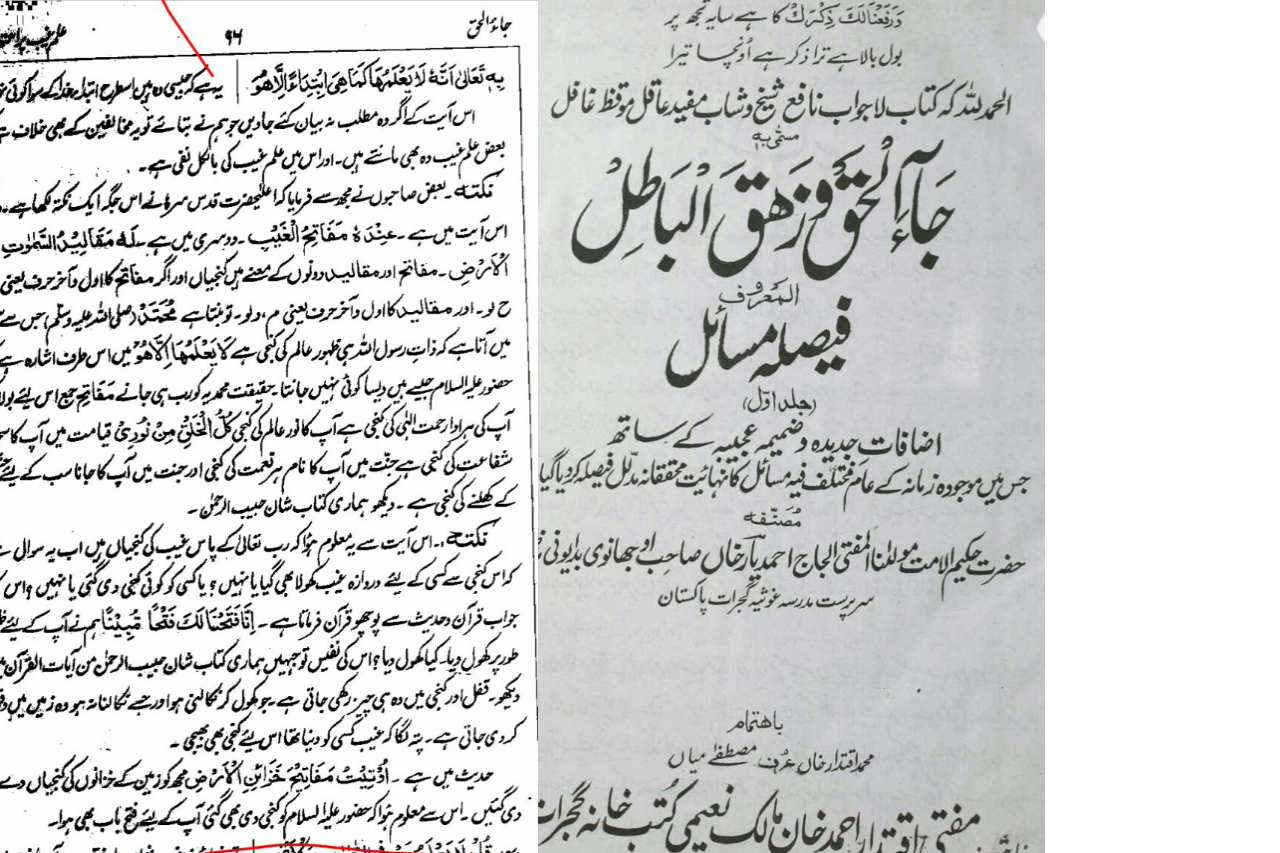 جاءالحق
۹۶
علم غیب
بِہٖ تَعَالیٰ اَنَّہٗ لَا یَعْلَمُھَا کَمَا ھِیَ اِبْتِدَاءً اِلَّا ھُوَ
یہ ہے کہ جیسی وہ ہیں اسطرح ابتداءً خدا کے سوا کوئی
اس آیت کے اگر وہ مطلب نہ بیان کئے جاویں جو ہم نے بتائے تو یہ مخالفین کے بھی خلاف
بعض علم غیب وہ بھی مانتے ہیں۔ اور اس میں علم غیب کی بالکل نفی ہے۔
نکتہ۔ بعض صاحبوں نے مجھ سے فرمایا کہ اعلیٰحضرت قدس سرہٗ نے اس جگہ ایک نکتہ لکھا ہے۔
اس آیت میں ہے۔ عِنْدَہٗ مَفَاتِحُ الْغَیْبِ۔ دوسری میں ہے۔ لَہٗ مَقَالِیْدُ السَّمٰوٰتِ
الْاَرْضِ۔ مفاتح اور مقالید دونوں کے معنے ہیں کنجیاں اور اگر مفاتح کا اول و آخر حرف یعنی
ح لو۔ اور مقالید کا اول و آخر حرف یعنی م، د لو۔ تو بنتا ہے مُحَمَّد (صلی اللہ علیہ وسلم) جس سے
میں آتا ہے کہ ذات رسول اللہ ہی ظہور عالم کی کنجی ہے لَا یَعْلَمُھَا اِلَّا ھُوَ میں اس طرف اشارہ ہے
حضور علیہ السلام جیسے ہیں ویسا کوئی نہیں جانتا۔ حقیقت محمدیہ کو رب ہی جانے مَفَاتِح جمع اس لئے
آپ کی ہر ادا رحمت الٰہی کی کنجی ہے آپ کا نور عالم کی کنجی کُلُّ الْخَلْقِ مِنْ نُوْرِیْ قیامت میں آپ کا
شفاعت کی کنجی ہے جنّت میں آپ کا نام ہر نعمت کی کنجی اور جنت میں آپ کا جانا سب کے لئے
کے کھلنے کی کنجی ہے۔ دیکھو ہماری کتاب شان حبیب الرحمٰن۔
نکتہ۔ اس آیت سے یہ معلوم ہوا کہ رب تعالیٰ کے پاس غیب کی کنجیاں ہیں اب یہ سوال
کہ اس کنجی سے کسی کے لیئے دروازہ غیب کھولا بھی گیا یا نہیں؟ یا کسی کو کوئی کنجی دی گئی یا نہیں؟ اس
جواب قرآن و حدیث سے پوچھو قرآن فرماتا ہے۔ اِنَّا فَتَحْنَا لَكَ فَتْحًا مُّبِیْنًا ہم نے آپ کے لیئے
طور پر کھول دیا۔ کیا کھول دیا؟ اس کی نفیس توجیہیں ہماری کتاب شان حبیب الرحمٰن من آیات القرآن
دیکھو۔ قفل اور کنجی میں وہ ہی چیز رکھی جاتی ہے۔ جو کھول کر نکالنی ہو اور جسے نکالنا نہ ہو وہ زمین میں
کر دی جاتی ہے۔ پتہ لگا کہ غیب کسی کو دینا تھا اس لئے کنجی بھی بھیجی۔
حدیث میں ہے۔ اُوْتِیْتُ مَفَاتِیْحَ خَزَائِنِ الْاَرْضِ مجھ کو زمین کے خزانوں کی کنجیاں دے
دی گئیں۔ اس سے معلوم ہوا کہ حضور علیہ السلام کو کنجی دی بھی گئی آپ کے لیئے فتح باب بھی ہوا۔
وَرَفَعْنَا لَكَ ذِكْرَكَ کا ہے سایہ تجھ پر
بول بالا ہے ترا ذکر ہے اُونچا تیرا
الحمد للہ کہ کتاب لاجواب نافع شیخ و شاب مفید عاقل موقظ غافل
مسمّٰی بہ
جَآءَ الْحَقُّ وَ زَھَقَ الْبَاطِلُ
المعروف
فیصلہ مسائل
(جلد اوّل)
اضافات جدیدہ و ضمیمہ عجیبہ کے ساتھ
جس میں موجودہ زمانہ کے عام مختلف فیہ مسائل کا نہائیت محققانہ مدلّل فیصلہ کر دیا گیا
مصنّفہ
حضرت حکیم الامت مولٰنا المفتی الحاج احمد یار خاں صاحب اوجھانوی بدایونی
سرپرست مدرسہ غوثیہ گجرات پاکستان
باھتمام
محمد اقتدار خاں عرف مصطفےٰ میاں
مفتی اقتدار احمد خان مالک نعیمی کُتب خانہ گجرات